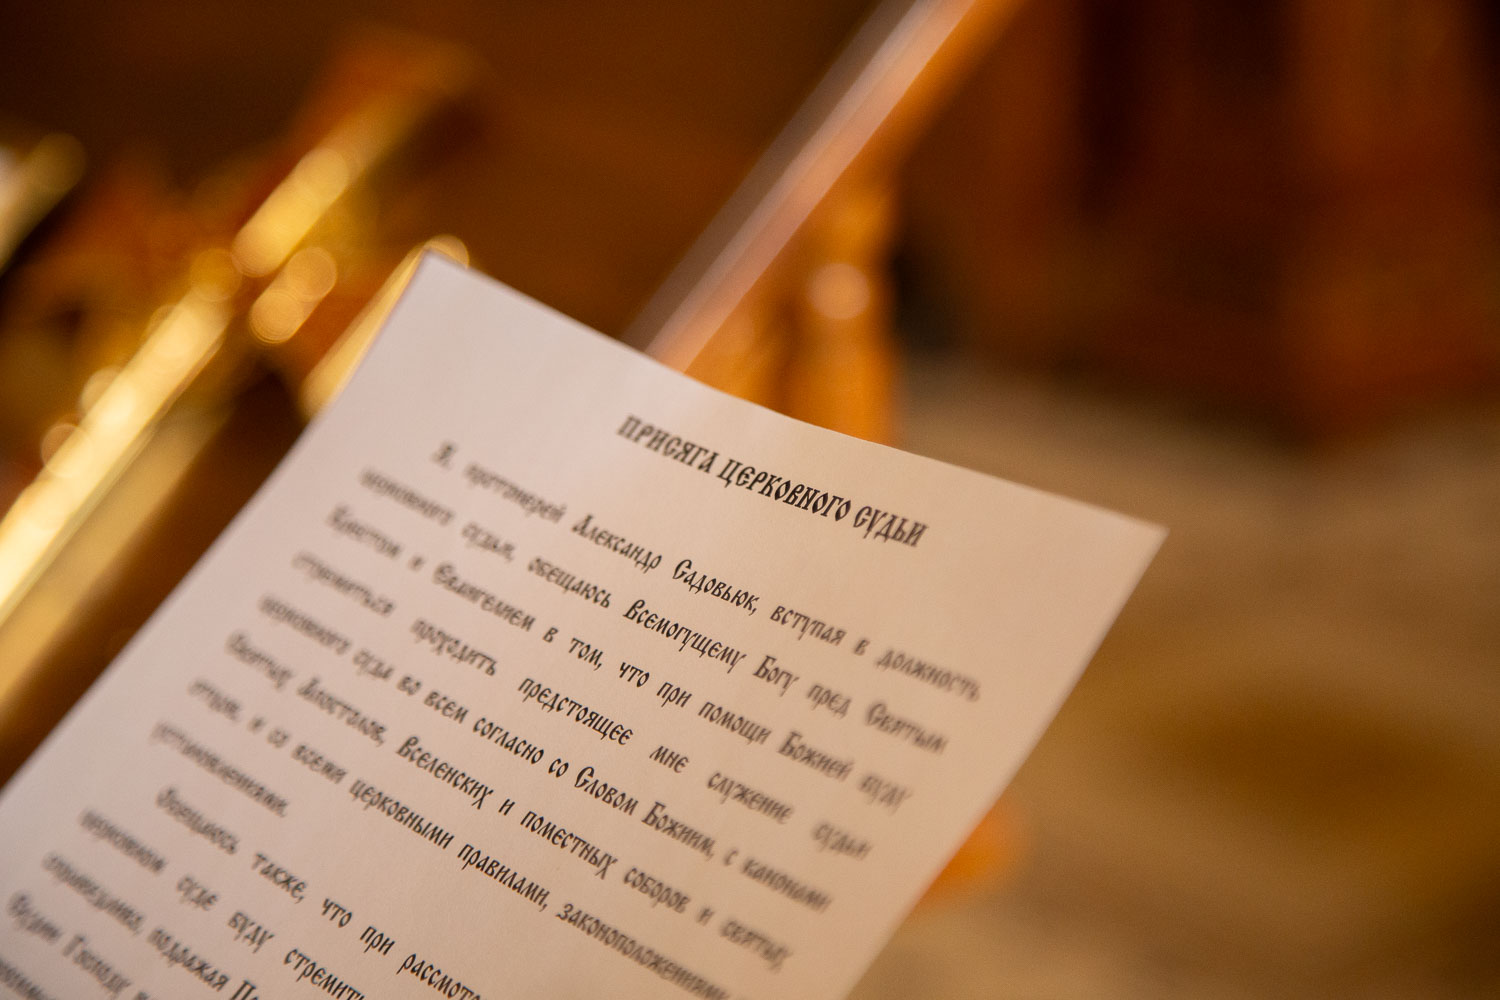 ПРИСЯГА ЦЕРКОВНОГО СУДЬИ
Я, протоиерей Александр Садовьюк, вступая в должность
церковного судьи, обещаюсь Всемогущему Богу пред Святым
Крестом и Евангелием в том, что при помощи Божией буду
стремиться проходить предстоящее мне служение судьи
церковного суда во всем согласно со Словом Божиим, с канонами
Святых Апостолов, Вселенских и поместных соборов и святых
отцов, и со всеми церковными правилами, законоположениями
установлениями.
Обещаюсь также, что при рассмот
церковном суде буду стремить
справедливо, подражая
Господу